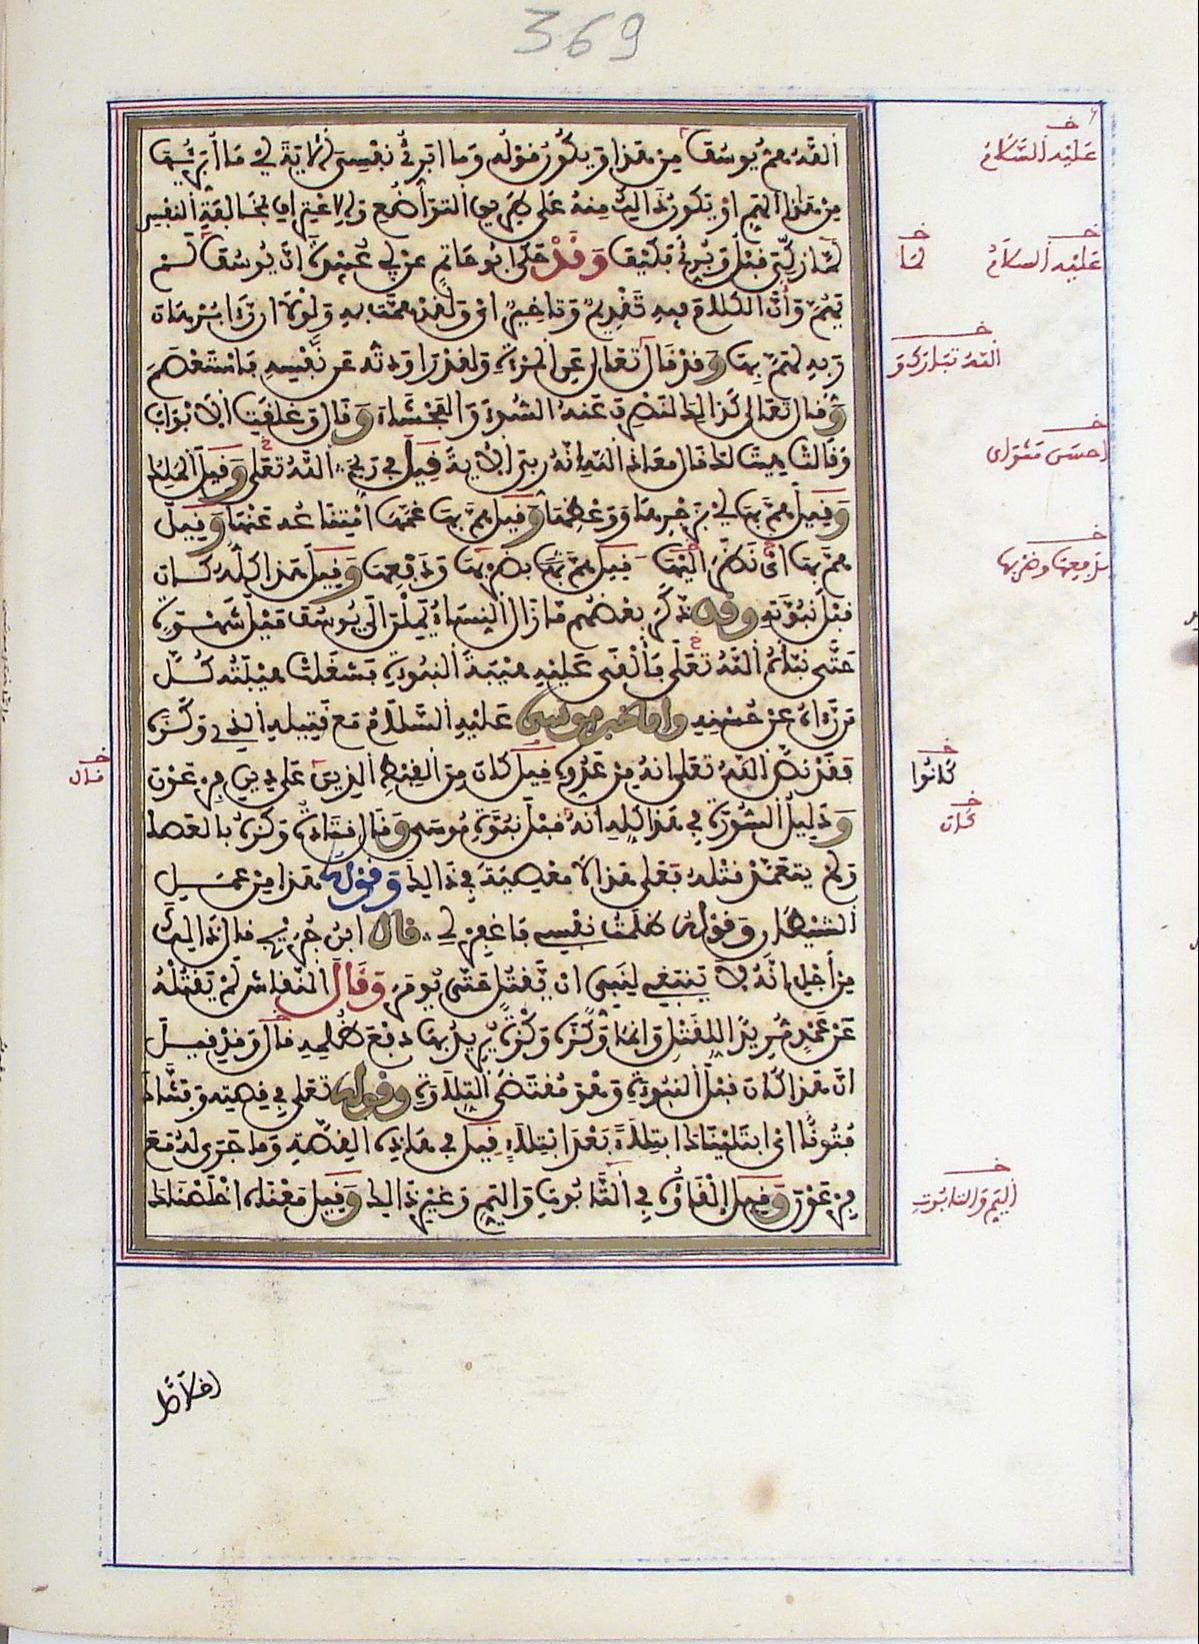 369
الله هم يوسف من هذا ويكون قوله وما ابرئ نفسي الاية أي ما ابريها
من هذا الهم او يكون ذالك منه على طريق التواضع والاعتراف بمخالفة النفس
لما زكي قبل وبرئ فكيف وقد حكى ابو حاتم عن ابي عبيدة ان يوسف لم
يهم وأن الكلام فيه تقديم وتاخير اي ولقد همت به ولولا ان رءا برهان
ربه لهم بها وقد قال تعالى عن المرأة ولقد راودته عن نفسه فاستعصم
وقال تعالى كذالك لنصرف عنه السوء والفحشاء وقال وغلقت الابواب
وقالت هيت لك قال معاذ الله انه ربي الاية قيل في ربي الله تعلى وقيل الملك
وقيل هم بها اي بزجرها ووعظها وقيل هم بها غمها امتناعه عنها وقيل
هم بها اي نظر اليها وقيل هم بها بضربها ودفعها وقيل هذا كله كان
قبل نبوته وقد ذكر بعضهم ما زال النساء يملن الى يوسف ميل شهوة
حتى نبأه الله تعلى فألقى عليه هيبة النبوة فشغلت هيبته كل
من رءاه عن حسنه واما خبر موسى عليه السلام مع قتيله الذي وكزه
فقد نص الله تعلى انه من عدوه قيل كان من القبط الذين على دين فرعون
ودليل السورة في هذا كله انه قبل نبوة موسى وقال قتادة وكزه بالعصا
ولم يتعمد قتله فعلى هذا لا معصية في ذالك وقوله هذا من عمل
الشيطان وقوله ظلمت نفسي فاغفر لي قال ابن جريج قال ذالك
من أجل انه لا ينبغي لنبي ان يقتل حتى يومر وقال النقاش لم يقتله
عن عمد مريدا للقتل وانما وكزه وكزة يريد بها دفع ظلمه قال وقد قيل
ان هذا كان قبل النبوة وهو مقتضى التلاوة وقوله تعلى في قصته وفتناك
فتونا اي ابتليناك ابتلاء بعد ابتلاء قيل في هذه القصة وما جرى له مع
فرعون وقيل إلقاؤه في التابوت واليم وغير ذالك وقيل معناه اخلصناك
اخلاصا
عليه السلام
عليه السلام
لما
الله تبارك و
احسن مثواي
بدفعها وضربها
كانوا
كان
قال
اليم والتابوت